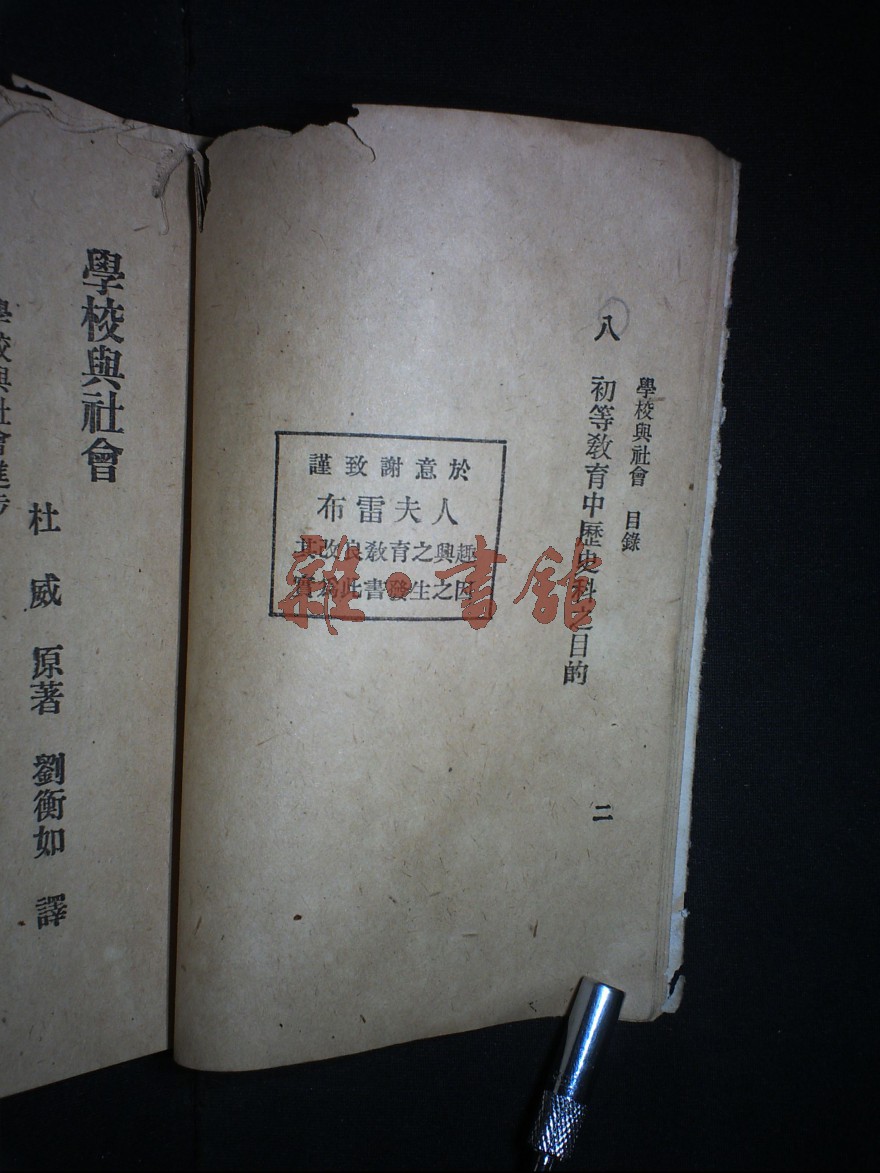 學校與社會 目錄
八 初等教育中歷史科之目的
二
謹致謝意於
布雷夫人
其改良教育之興趣
實為此書發生之因
雜·書館
學校與社會
杜威 原著 劉衡如 譯
學校與社會進步